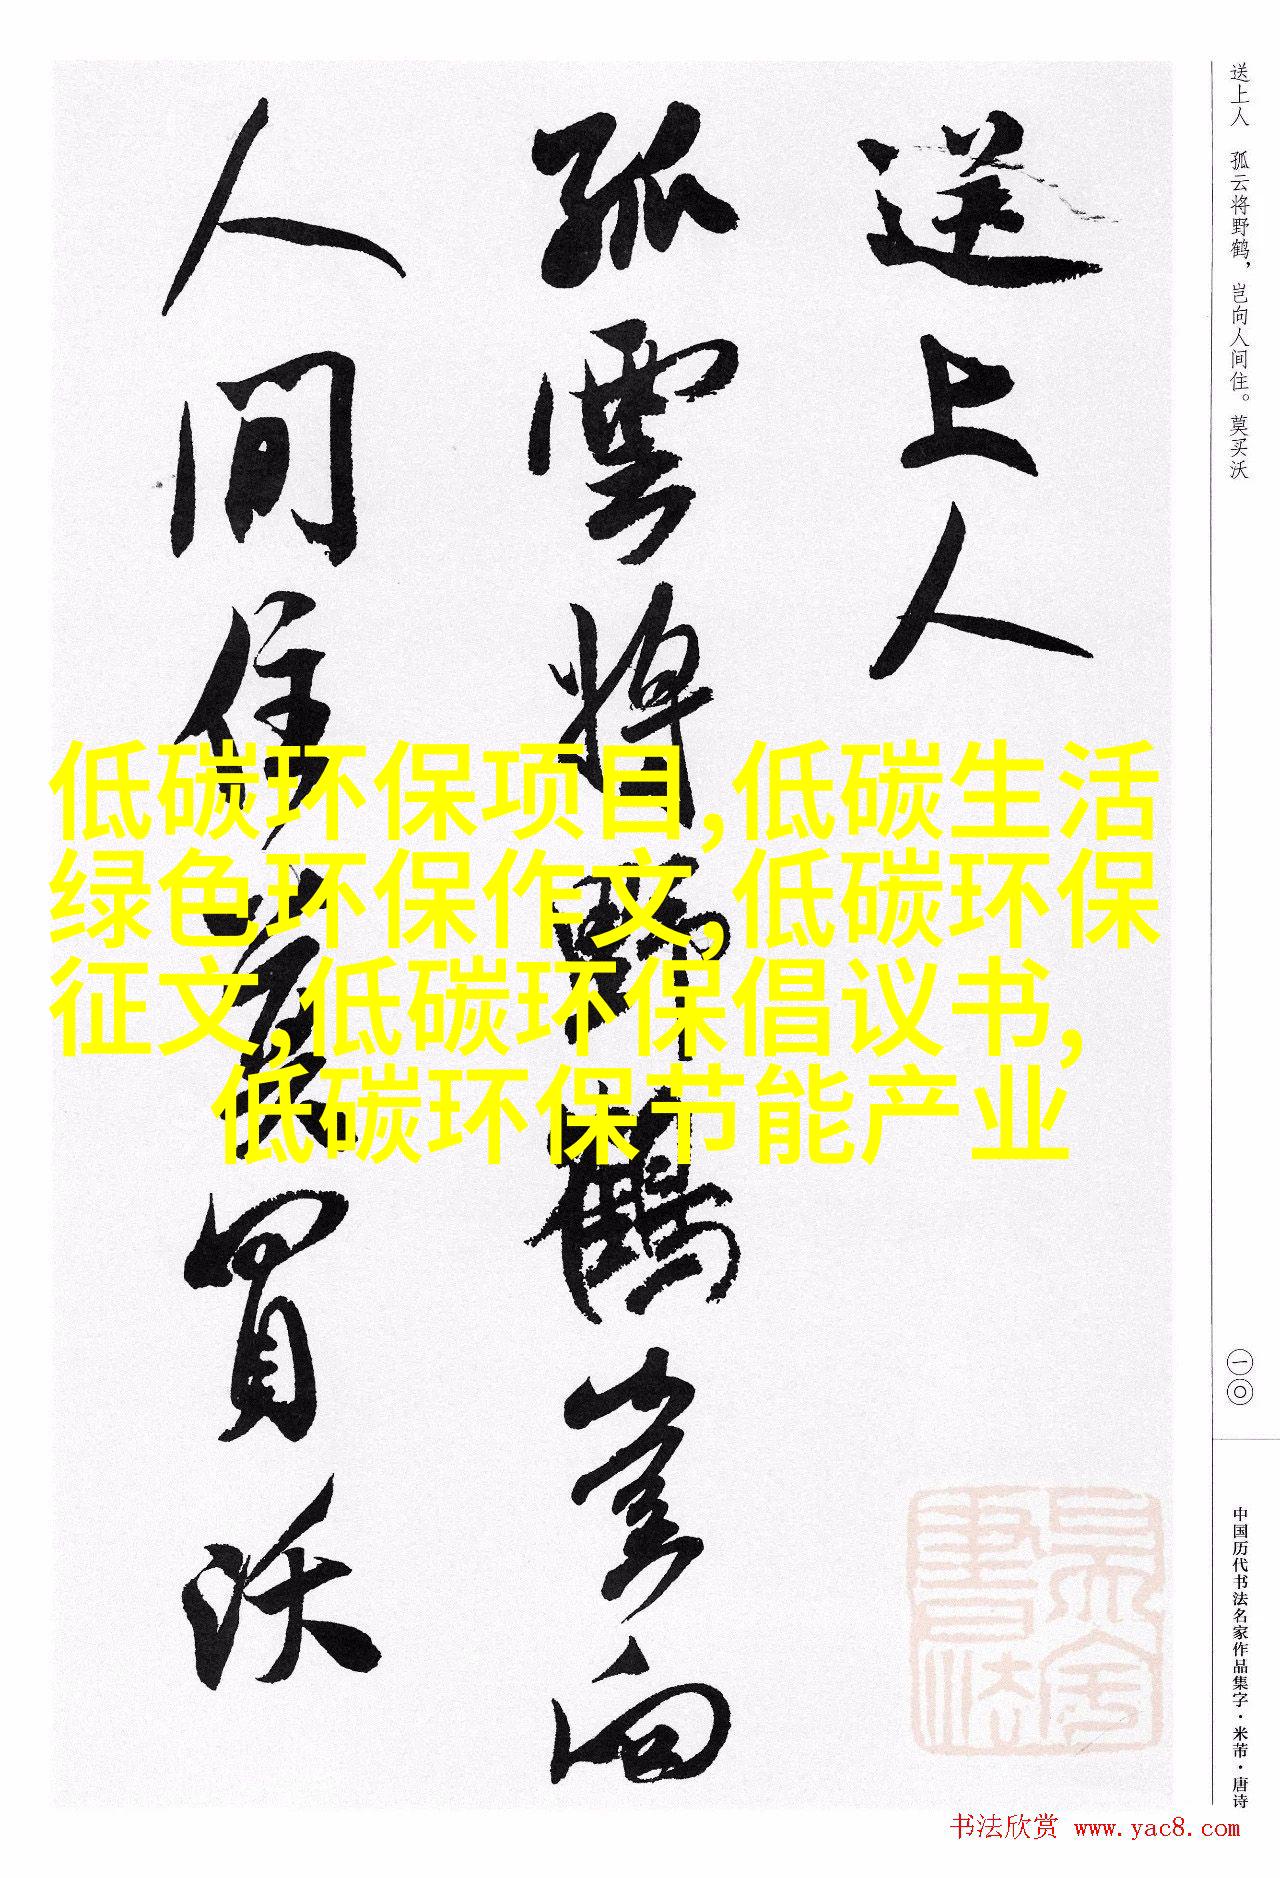 送上人　孤云将野鹤，岂向人间住。莫买沃
送上人
孤雲將野鶴豈向
人間住莫買沃
低碳环保项目,低碳生活
绿色环保作文,低碳环保
征文,低碳环保倡议书,
低碳环保节能产业
一〇
中国历代书法名家作品集字·米芾·唐诗
书法欣赏 www.yac8.com